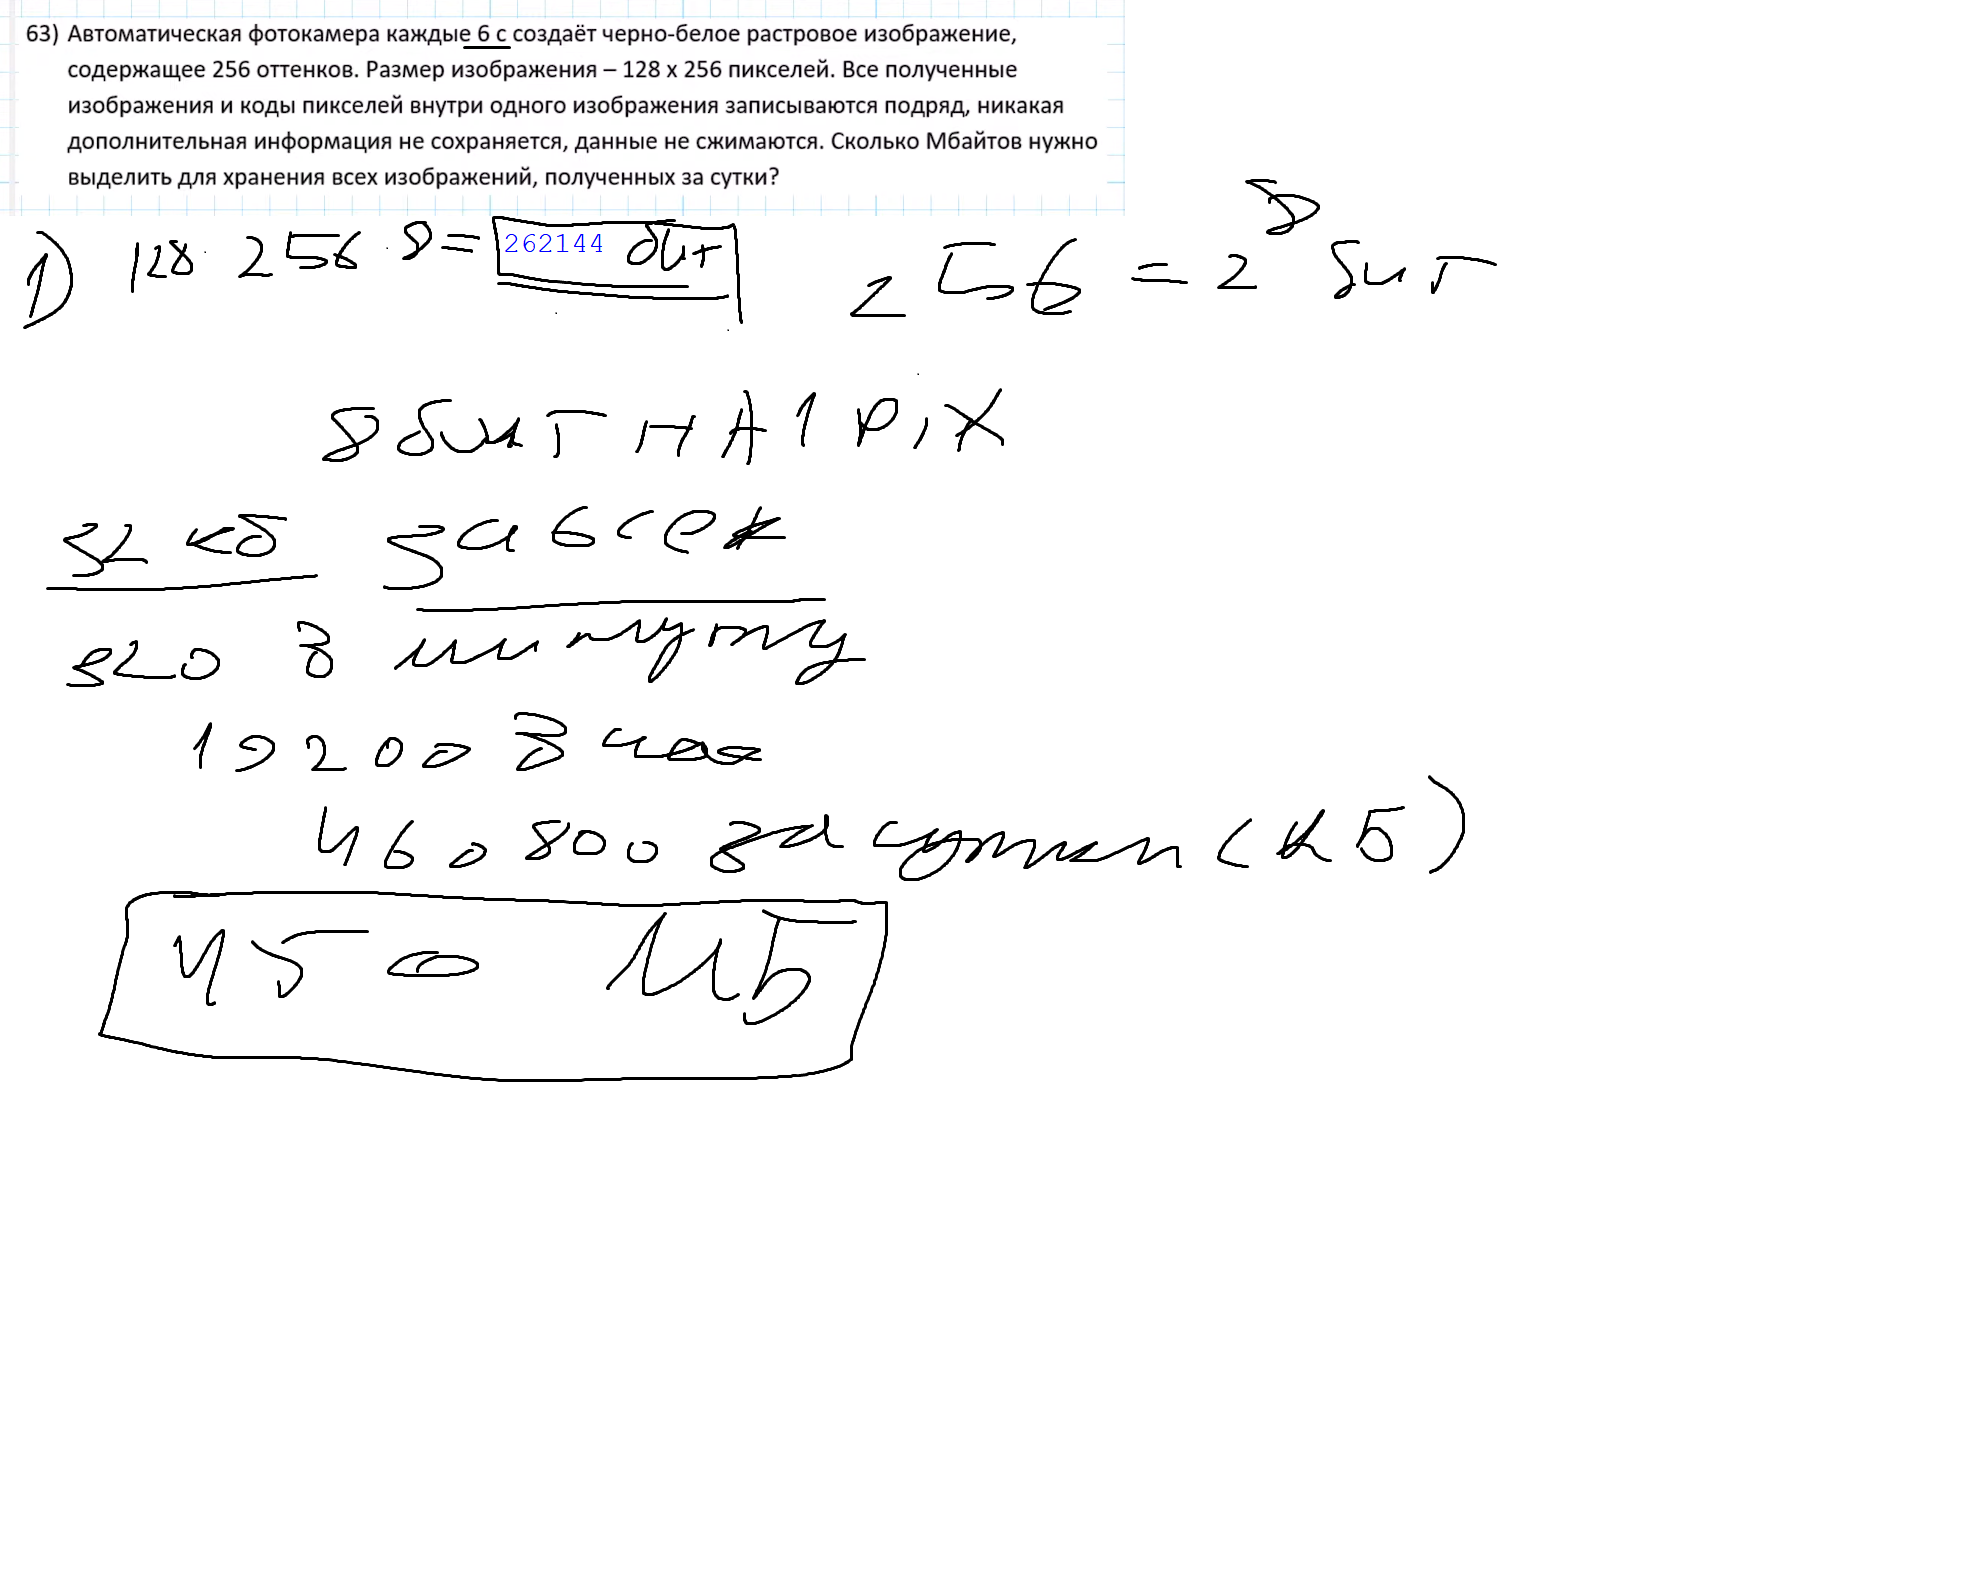 63) Автоматическая фотокамера каждые 6 с создаёт черно-белое растровое изображение,
содержащее 256 оттенков. Размер изображения – 128 x 256 пикселей. Все полученные
изображения и коды пикселей внутри одного изображения записываются подряд, никакая
дополнительная информация не сохраняется, данные не сжимаются. Сколько Мбайтов нужно
выделить для хранения всех изображений, полученных за сутки?
1) 128 · 256 · 8 = 262144 бит
256 = 2^8 бит
8 бит НА 1 PiX
32 кб за 6 сек
320 В минуту
19200 В час
460800 за сутки (КБ)
450 МБ